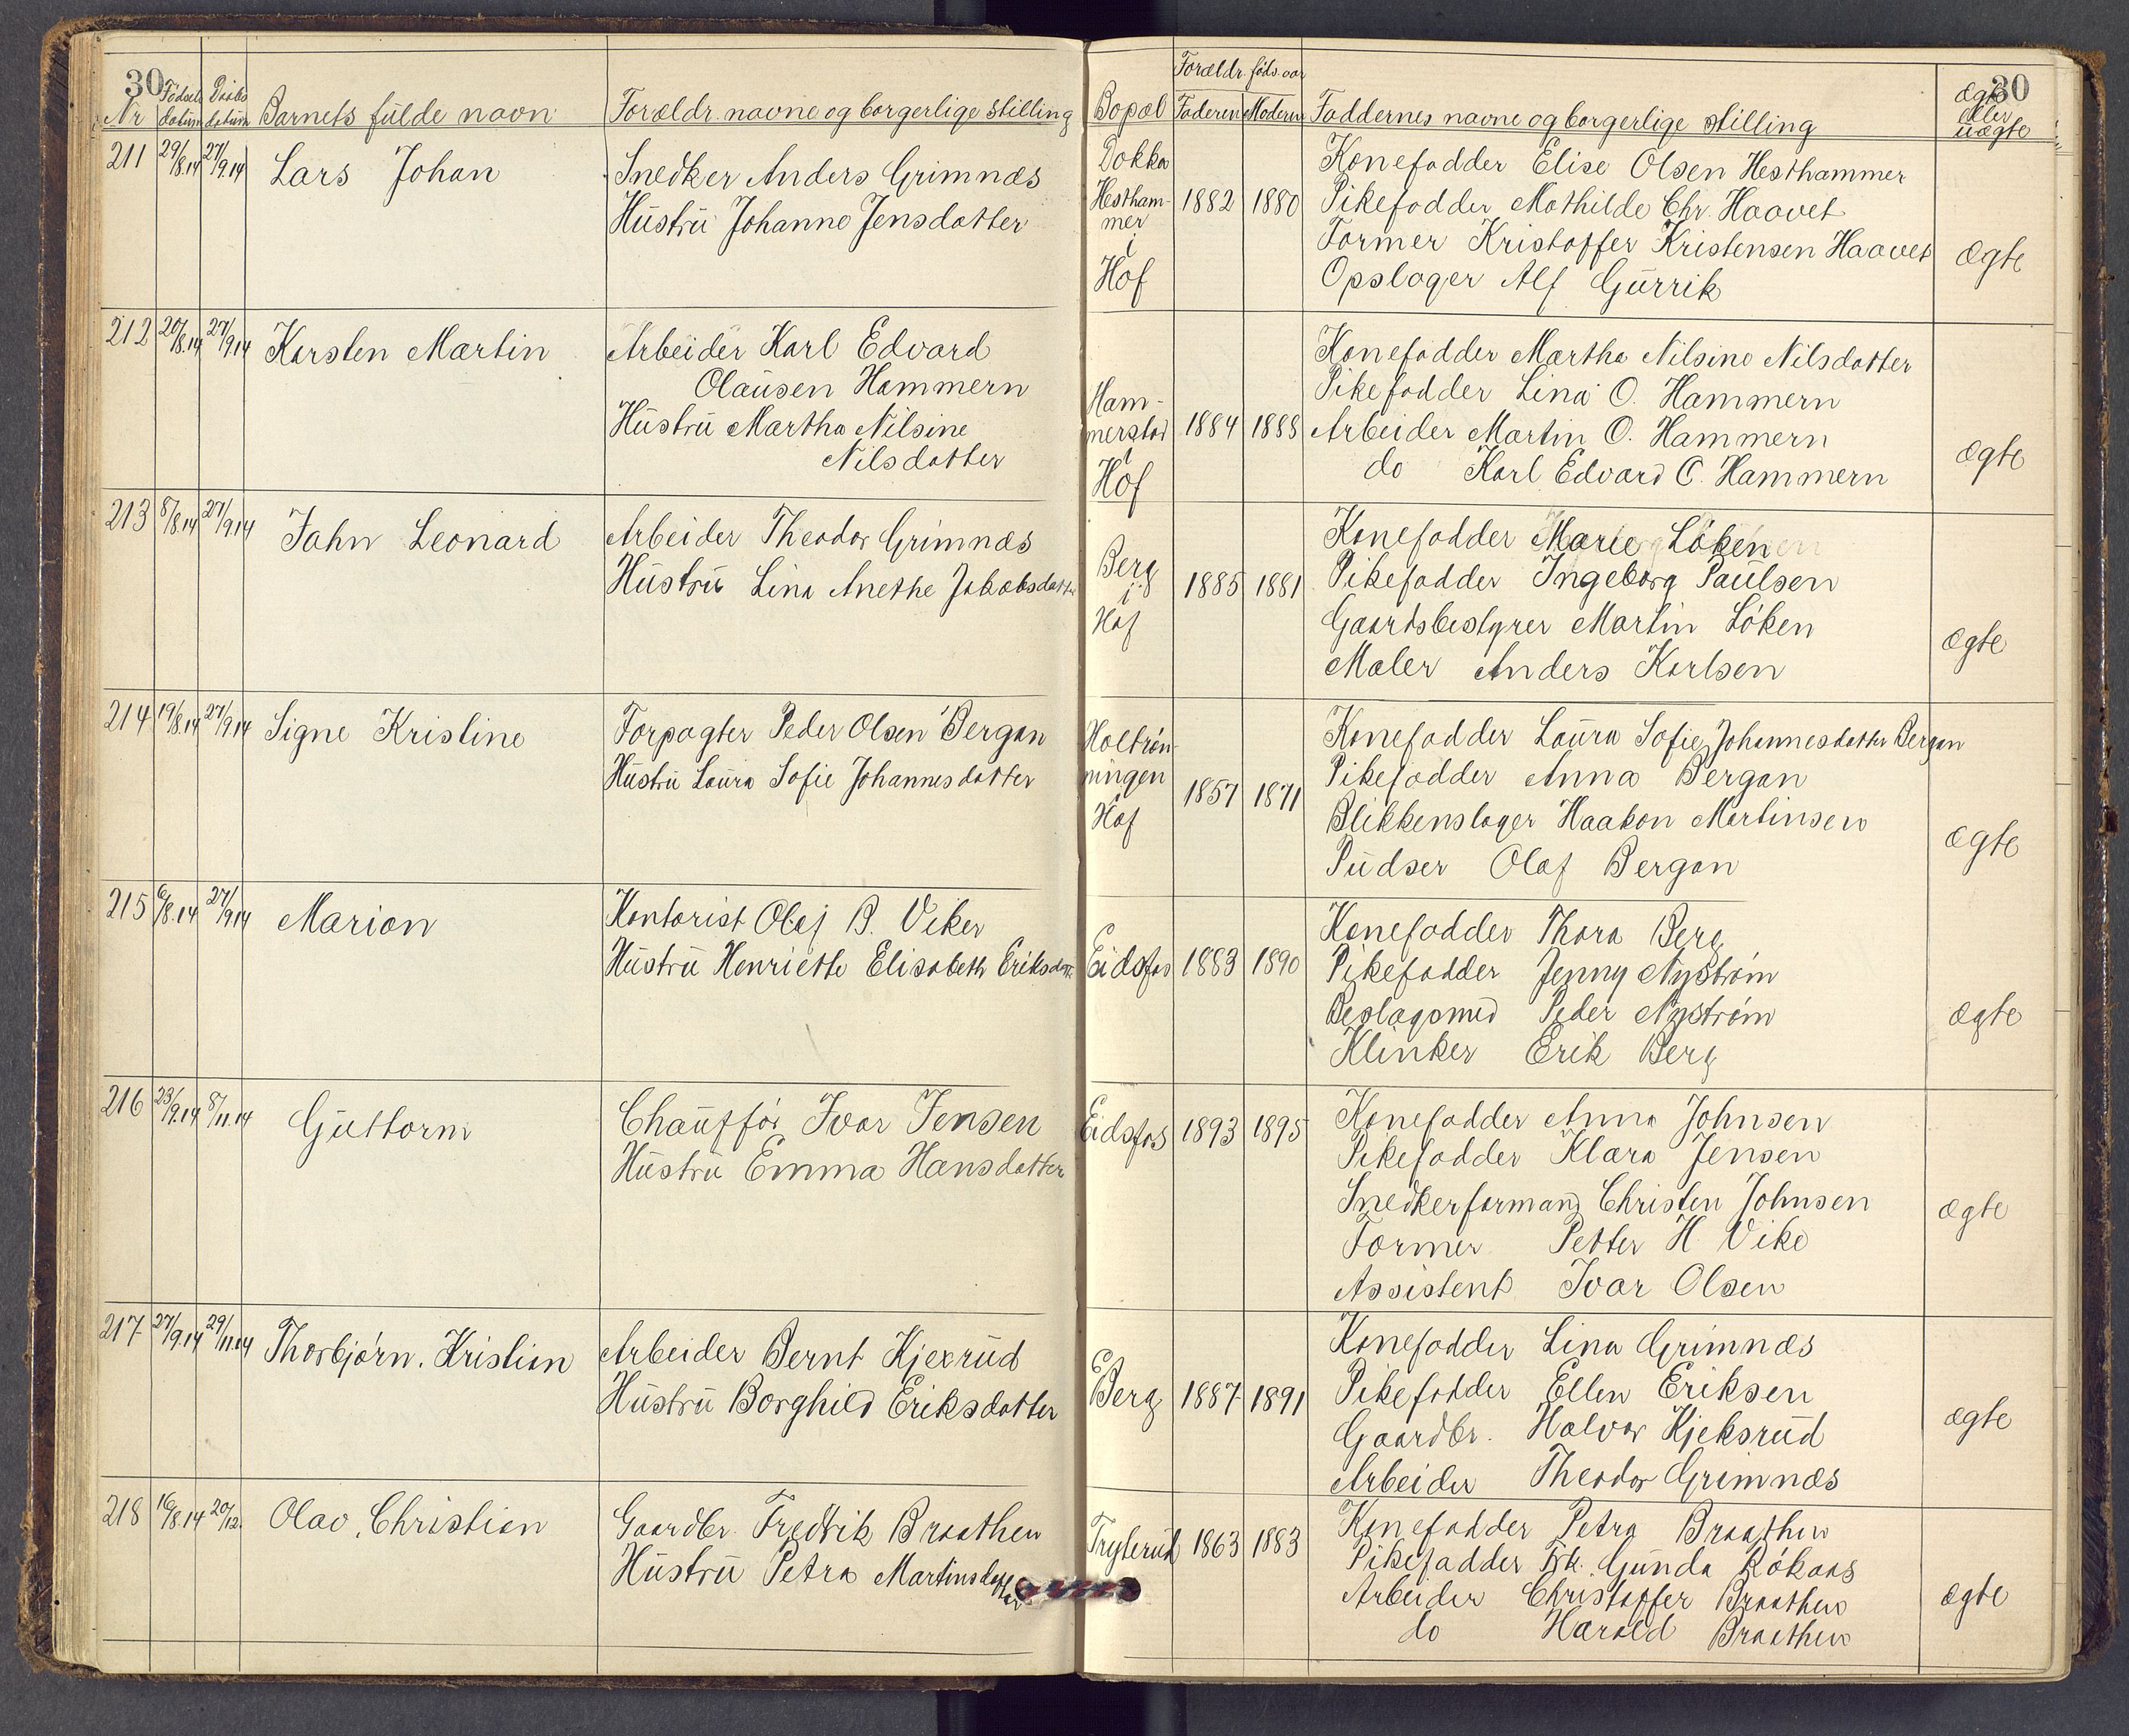 30
Nr
Fødsels datum
Daabs datum
Barnets fulde navn
Forældr. navne og borgerlige stilling
Bopæl
Forældr. føds. aar
Faderen
Moderen
Faddernes navne og borgerlige stilling
ægte eller uægte
30
211
29/8.14
27/9.14
Lars Johan
Snedker Anders Grimnæs
Hustru Johanne Jensdatter
Dokka
Hestham-
mer
i
Hof
1882
1880
Konefadder Elise Olsen Hesthammer
Pikefadder Mathilde Chr. Haavet
Former Kristoffer Kristensen Haavet
Opslager Alf Gurrik
ægte
212
20/8.14
27/9.14
Karsten Martin
Arbeider Karl Edvard
Olausen Hammern
Hustru Martha Nilsine
Nilsdatter
Ham-
merstad
i
Hof
1884
1888
Konefadder Martha Nilsine Nilsdatter
Pikefadder Lina O. Hammern
Arbeider Martin O. Hammern
do Karl Edvard O. Hammern
ægte
213
8/8.14
27/9.14
Jahn Leonard
Arbeider Theodor Grimnæs
Hustru Lina Anethe Jakobsdatter
Berg
i
Hof
1885
1881
Konefadder Marie Løken
Pikefadder Ingeborg Paulsen
Gaardsbestyrer Martin Løken
Maler Anders Karlsen
ægte
214
19/8.14
27/9.14
Signe Kristine
Forpagter Peder Olsen Bergan
Hustru Laura Sofie Johannesdatter
Holtrøn-
ningen
Hof
1857
1871
Konefadder Laura Sofie Johannesdatter Bergan
Pikefadder Anna Bergan
Blikkenslager Haakon Martinsen
Pudser Olaf Bergan
ægte
215
6/8.14
27/9.14
Marion
Kontorist Olaf B. Veker
Hustru Henriette Elisabeth Eriksdatr.
Eidsfos
1883
1890
Konefadder Thora Berg
Pikefadder Jenny Nystrøm
Beslagsmed Peder Nystrøm
Klinker Erik Berg
ægte
216
23/9.14
8/11.14
Guttorm
Chauffør Ivar Jensen
Hustru Emma Hansdatter
Eidsfos
1893
1895
Konefadder Anna Johnsen
Pikefadder Klara Jensen
Snedkerformand Christen Johnsen
Former Petter H. Vike
Assistent Ivar Olsen
ægte
217
27/9.14
29/11.14
Thorbjørn. Kristian
Arbeider Bernt Kjexrud
Hustru Borghild Eriksdatter
Berg
1887
1891
Konefadder Lina Grimnæs
Pikefadder Ellen Eriksen
Gaardbr. Halvor Kjeksrud
Arbeider Theodor Grimnæs
ægte
218
16/8.14
20/12.
Olav. Christian
Gaardbr. Fredrik Braathen
Hustru Petra Martinsdatter
Tryterud
1863
1883
Konefadder Petra Braathen
Pikefadder Frk. Gunda Røkaas
Arbeider Christoffer Braathen
do Harald Braathen
ægte